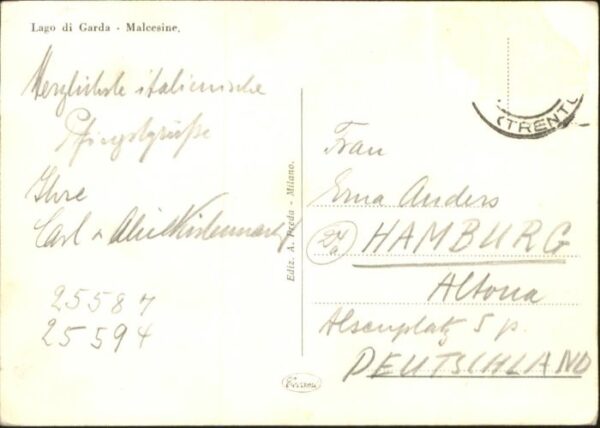 Lago di Garda - Malcesine.
Herzlichste italienische
Pfingstgrüße
Ihre
Carl +
25587
25594
Ediz. A. Preda - Milano.
(TRENTO
Frau
Erna Anders
24a HAMBURG
Altona
Alsenplatz 5 p.
DEUTSCHLAND